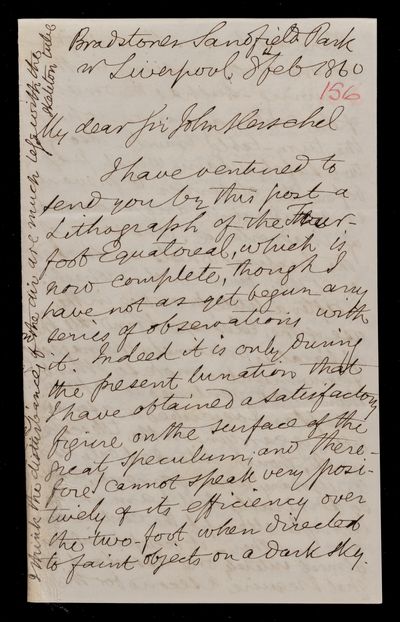 Bradstones Sandfield Park
nr Liverpool, 8 Feb 1860
156
My dear Sir John Herschel
I have ventured to
send you by this post a
Lithograph of the Four-
foot Equatoreal, which is
now complete, though I
have not as yet begun any
series of observations with
it. Indeed it is only during
the present lunation that
I have obtained a satisfactory
figure on the surface of the
great speculum, and there-
fore cannot speak very posi-
tively of its efficiency over
the two-foot when directed
to faint objects on a dark sky.
I think the disturbances of the air are much less with the
skeleton tube